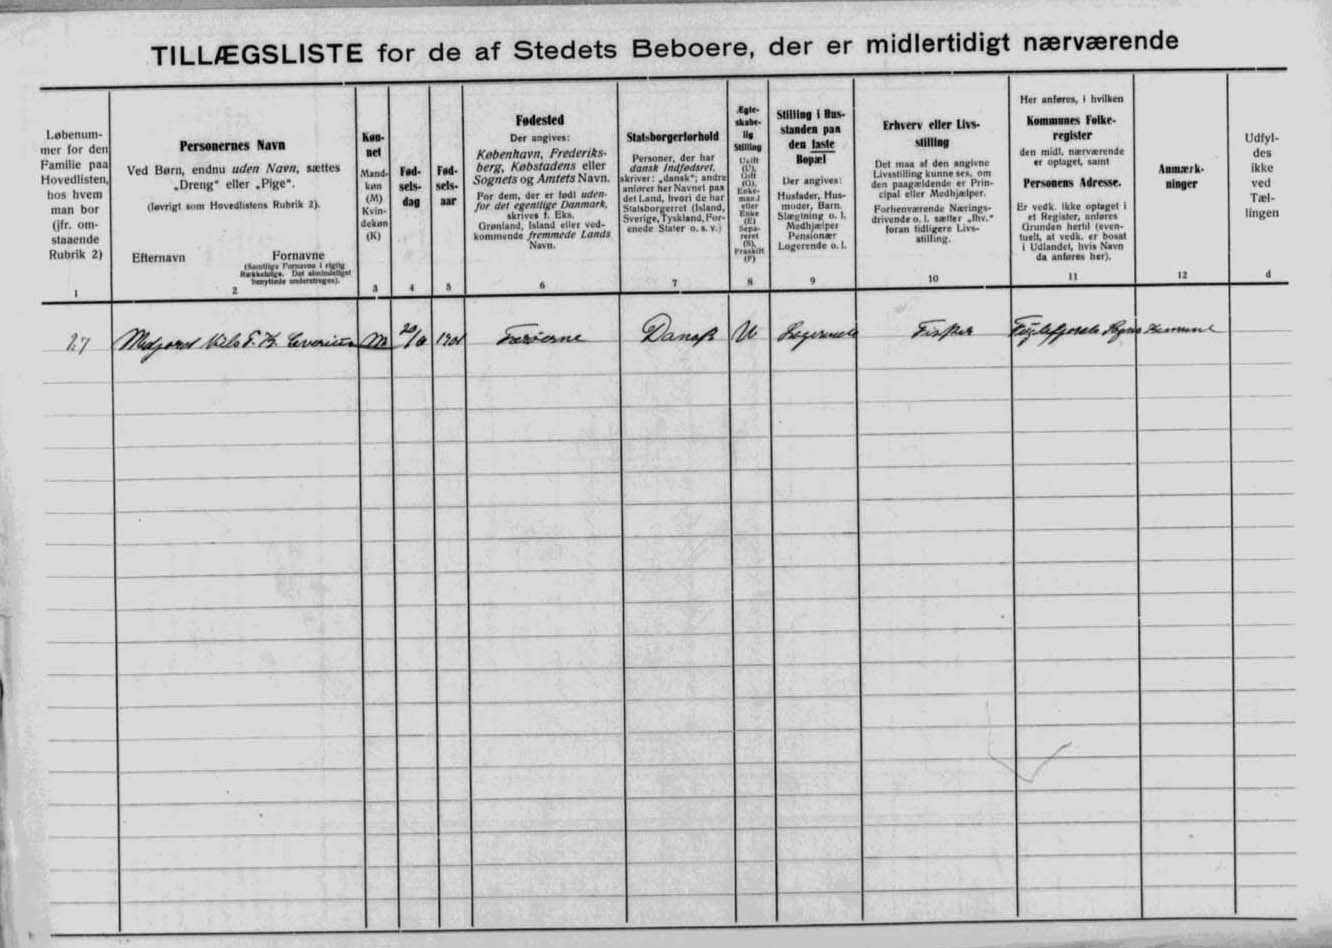 TILLÆGSLISTE for de af Stedets Beboere, der er midlertidigt nærværende
Løbenum-
mer for den
Familie paa
Hovedlisten,
hos hvem
man bor
(jfr. om-
staaende
Rubrik 2)
1
Personernes Navn
Ved Børn, endnu uden Navn, sættes
„Dreng“ eller „Pige“.
(Iøvrigt som Hovedlistens Rubrik 2).
Efternavn
Fornavne
(Samtlige Fornavne i rigtig
Rækkefølge. Det almindeligst
benyttede understreges).
2
Køn-
net
Mand-
køn
(M)
Kvin-
dekøn
(K)
3
Fød-
sels-
dag
4
Fød-
sels-
aar
5
Fødested
Der angives:
København, Frederiks-
berg, Købstadens eller
Sognets og Amtets Navn.
For dem, der er født uden-
for det egentlige Danmark,
skrives f. Eks.
Grønland, Island eller ved-
kommende fremmede Lands
Navn.
6
Statsborgerforhold
Personer, der har
dansk Indfødsret,
skriver: „dansk“; andre
anfører her Navnet paa
det Land, hvori de har
Statsborgerret (Island,
Sverige, Tyskland, For-
enede Stater o. s. v.)
7
Ægte-
skabe-
lig
Stilling
Ugift
(U),
Gift
(G),
Enke-
mand
eller
Enke
(E)
Sepa-
reret
(S),
Fraskilt
(F)
8
Stilling i Hus-
standen paa
den faste
Bopæl
Der angives:
Husfader, Hus-
moder, Barn,
Slægtning o. l.
Medhjælper
Pensionær
Logerende o. l.
9
Erhverv eller Livs-
stilling
Det maa af den angivne
Livsstilling kunne ses, om
den paagældende er Prin-
cipal eller Medhjælper.
Forhenværende Nærings-
drivende o. l. sætter „fhv.“
foran tidligere Livs-
stilling.
10
Her anføres, i hvilken
Kommunes Folke-
register
den midl. nærværende
er optaget, samt
Personens Adresse.
Er vedk. ikke optaget i
et Register, anføres
Grunden hertil (even-
tuelt, at vedk. er bosat
i Udlandet, hvis Navn
da anføres her).
11
Anmærk-
ninger
12
Udfyl-
des
ikke
ved
Tæl-
lingen
d
27 Nils M 1901 Færøerne Dansk U Logerende Fisker